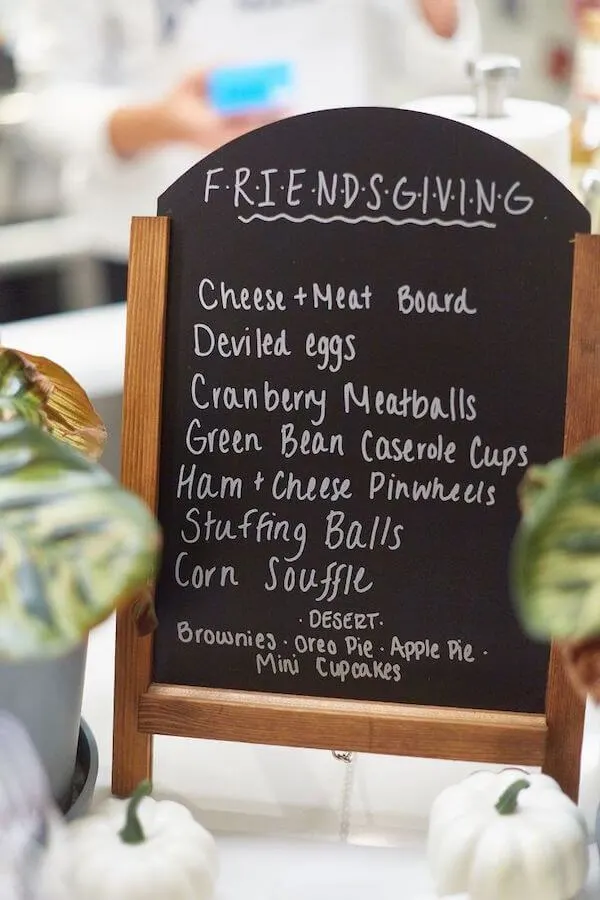 F·R·I·E·N·D·S·G·I·V·I·N·G
Cheese + Meat Board
Deviled eggs
Cranberry Meatballs
Green Bean Caserole Cups
Ham + Cheese Pinwheels
Stuffing Balls
Corn Souffle
· DESERT ·
Brownies · Oreo Pie · Apple Pie ·
Mini Cupcakes